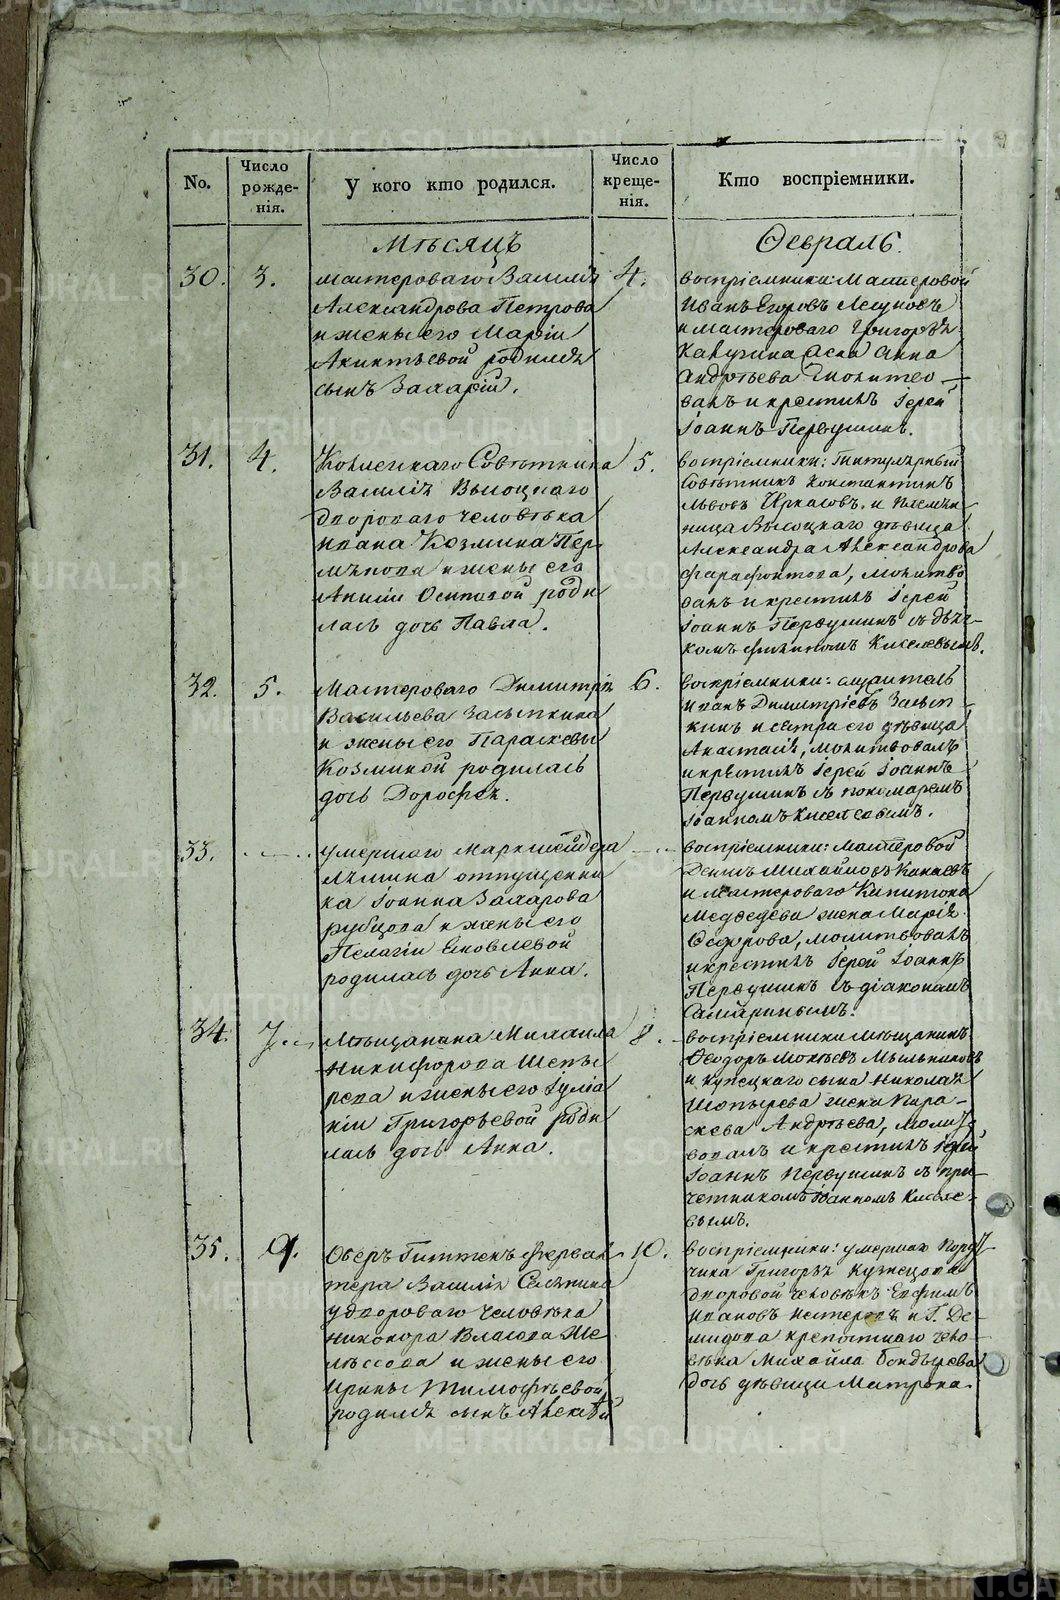 No.
Число рожде-нія.
У кого кто родился.
Число креще-нія.
Кто воспріемники.
Мѣсяцъ
Февраль.
30.
3.
мастероваго Василія
Александрова Петрова
и жены его Маріи
родился
сынъ Захарій.
4.
воспріемники: Мастеровой
Иванъ Егоровъ
и мастероваго Григорья
жена Анна
Андрѣева молитво-
валъ и крестилъ Іерей
Іоаннъ Первушинъ.
31.
4.
Совѣтника
Василія Высоцкаго
двороваго человѣка
Ивана Козмина Пер-
мякова и жены его
Анисіи Осиповой роди
лась дочь Павла.
5.
воспріемники: Титулярный
Совѣтникъ Константинъ
Львовъ Черкасовъ. и племян-
ница Высоцкаго дѣвица
Александра Александрова
молитво
валъ и крестилъ Іерей
Іоаннъ Первушинъ съ дьяч-
комъ Филипомъ Киселевымъ.
32.
5.
Мастероваго Димитрія
Васильева Засыпкина
и жены его Параскевы
Козминой родилась
дочь Дорофея.
6.
воспріемники: служитель
Иванъ Димитріевъ Засып-
кинъ и сестра его дѣвица
Анастасія, молитвовалъ
и крестилъ Іерей Іоаннъ
Первушинъ съ пономаремъ
Іоанномъ Киселевымъ.
33.
умершаго Маркшейдера
отпущенни
ка Іоанна Захарова
Рубцова и жены его
Пелагіи Яковлевой
родилась дочь Анна.
воспріемники: мастеровой
Денисъ Михайловъ
и мастероваго Капитона
Медведева жена Марія
Ѳедорова, молитвовалъ
и крестилъ Іерей Іоаннъ
Первушинъ съ діакономъ
Самаринымъ.
34.
7.
Мѣщанина Михаила
Никифорова
и жены его Іуліа
ніи Григорьевой роди
лась дочь Анна.
8.
воспріемники мѣщанинъ
Ѳеодоръ Мыльниковъ
и купецкаго сына Николая
жена Пара-
скева Андрѣева, молит
вовалъ и крестилъ Іерей
Іоаннъ Первушинъ съ при-
четникомъ Іоанномъ Кисele-
вымъ.
35.
9.
Оберъ Гиттенъ Фервал-
тера Василія
у двороваго человѣка
Никонора Власова
и жены его
Ирины Тимофѣевой
родился сынъ Алексѣй
10.
воспріемники: умершаго Пору
чика Григорья Кузнецова
дворовой человѣкъ Ефимъ
Ивановъ Нестеровъ и Г. Де-
мидова крепостнаго чело-
вѣка Михайла
дочь дѣвица Матрона.
METRIKI.GASO-URAL.RU